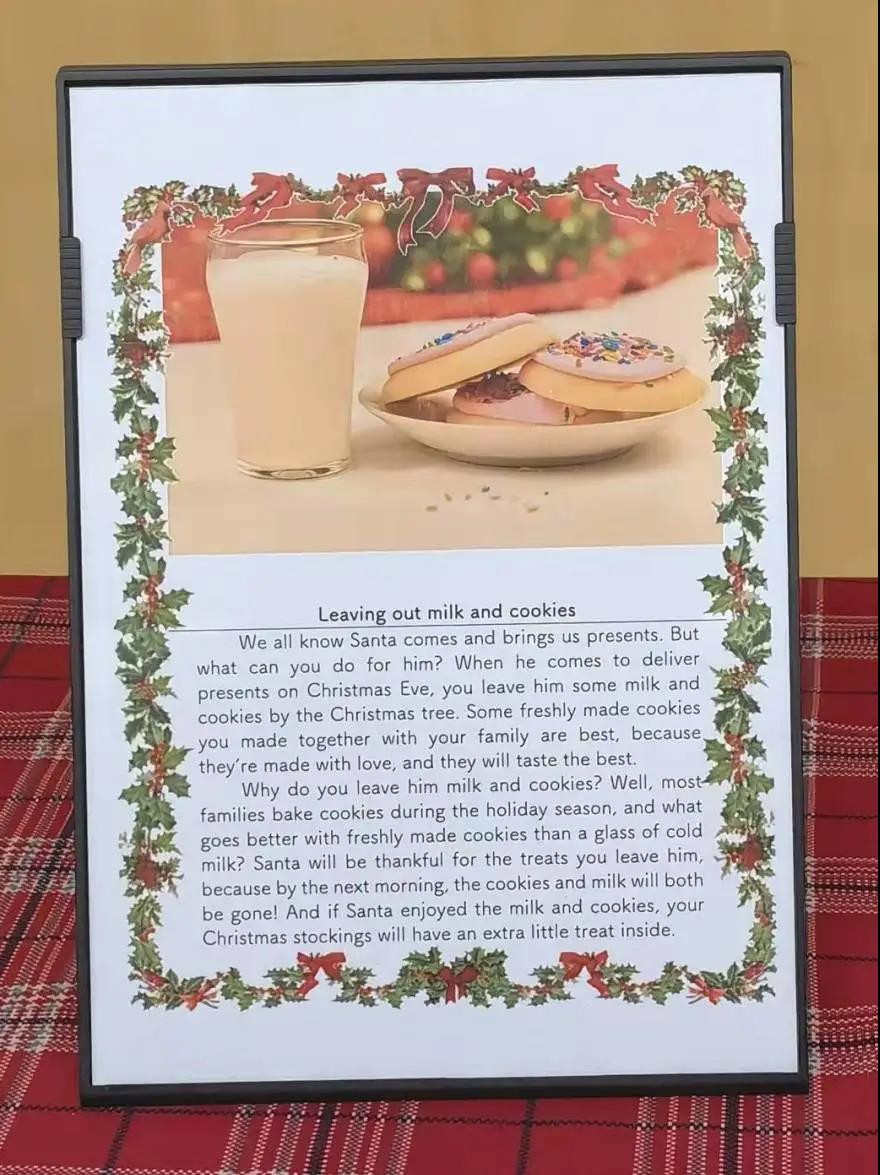 Leaving out milk and cookies
We all know Santa comes and brings us presents. But
what can you do for him? When he comes to deliver
presents on Christmas Eve, you leave him some milk and
cookies by the Christmas tree. Some freshly made cookies
you made together with your family are best, because
they're made with love, and they will taste the best.
Why do you leave him milk and cookies? Well, most
families bake cookies during the holiday season, and what
goes better with freshly made cookies than a glass of cold
milk? Santa will be thankful for the treats you leave him,
because by the next morning, the cookies and milk will both
be gone! And if Santa enjoyed the milk and cookies, your
Christmas stockings will have an extra little treat inside.